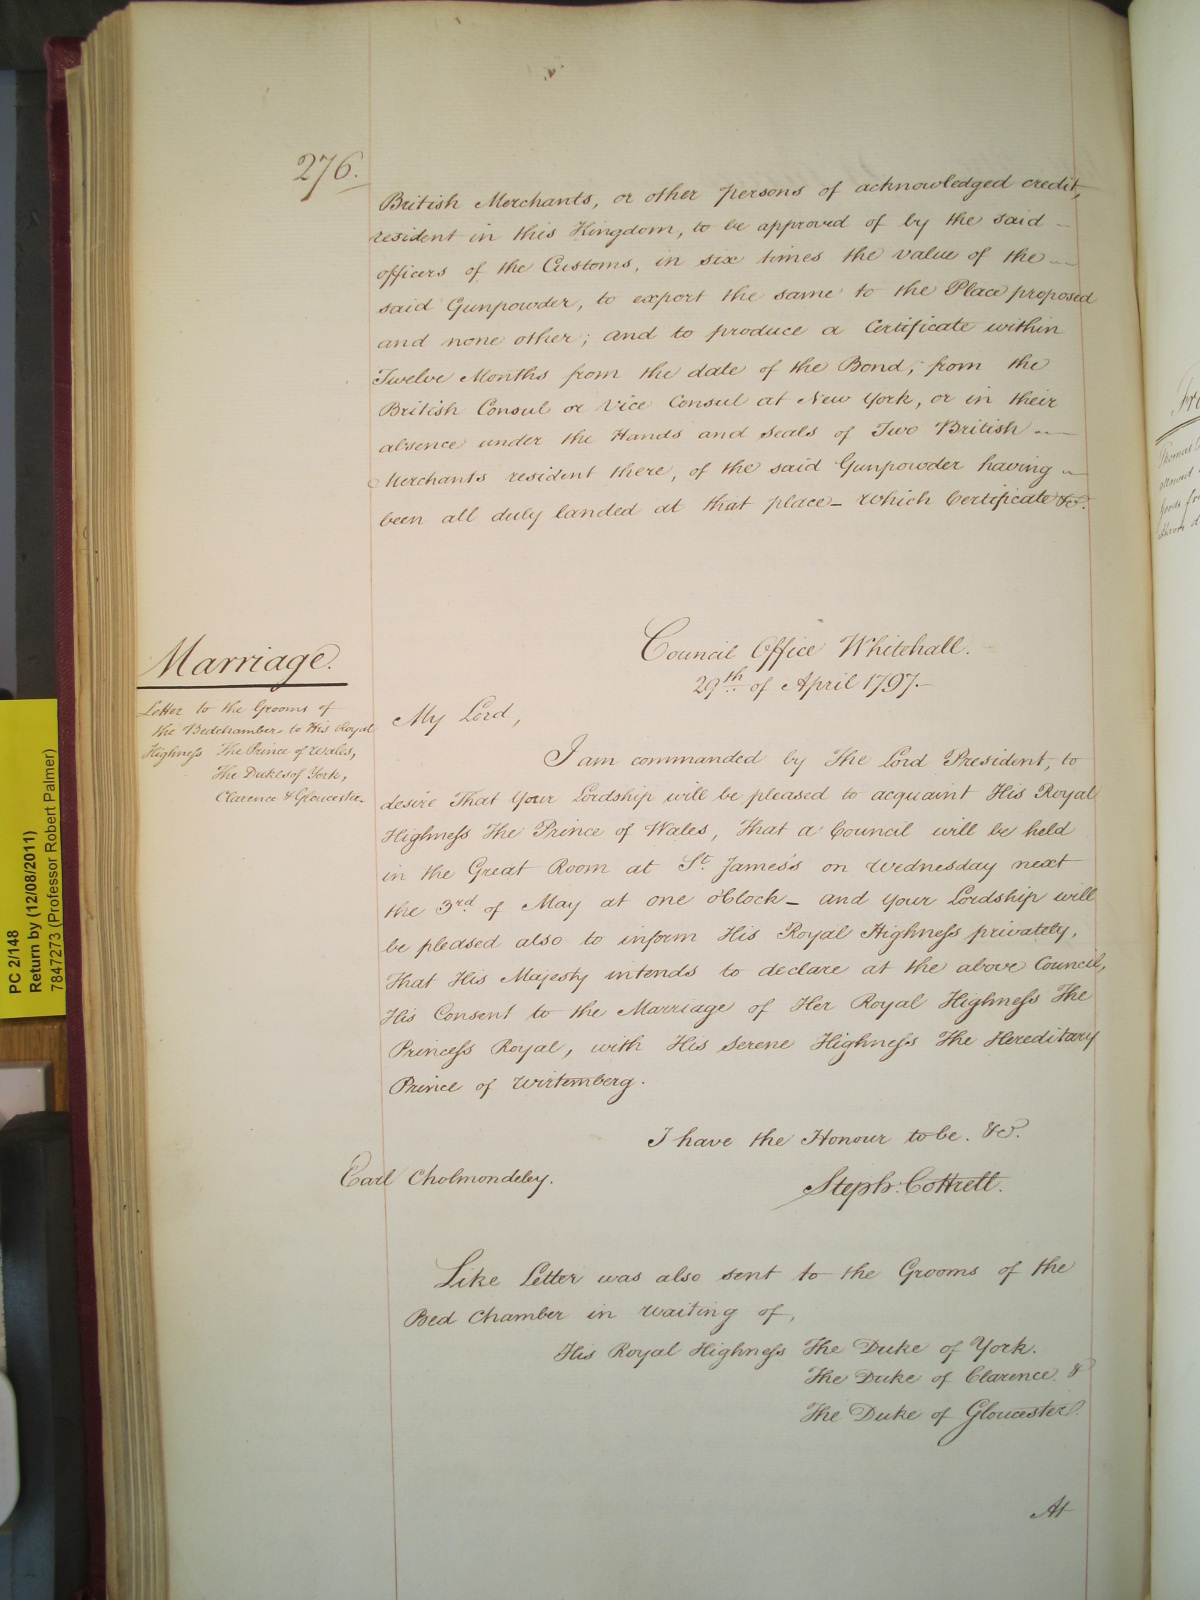 276.
British Merchants, or other persons of acknowledged credit,
resident in this Kingdom, to be approved of by the said
officers of the Customs, in six times the value of the
said Gunpowder, to export the same to the Place proposed
and none other; and to produce a Certificate within
Twelve Months from the date of the Bond, from the
British Consul or Vice Consul at New York, or in their
absence under the Hands and Seals of Two British
Merchants resident there, of the said Gunpowder having
been all duly landed at that place – which Certificate &c.
Council Office Whitehall.
29th of April 1797.
Marriage.
Letter to the Grooms of
the Bedchamber to His Royal
Highness The Prince of Wales,
The Dukes of York,
Clarence & Gloucester.
My Lord,
I am commanded by The Lord President, to
desire That Your Lordship will be pleased to acquaint His Royal
Highness The Prince of Wales, That a Council will be held
in the Great Room at St. James's on Wednesday next
the 3rd of May at one o'Clock – and your Lordship will
be pleased also to inform His Royal Highness privately,
That His Majesty intends to declare at the above Council,
His Consent to the Marriage of Her Royal Highness The
Princess Royal, with His Serene Highness The Hereditary
Prince of Wirtemberg.
I have the Honour to be. &c.
Earl Cholmondeley.
Steph: Cottrell.
Like Letter was also sent to the Grooms of the
Bed Chamber in waiting of,
His Royal Highness The Duke of York.
The Duke of Clarence. &
The Duke of Gloucester.
At
PC 2/148
Return by (12/08/2011)
7847273 (Professor Robert Palmer)